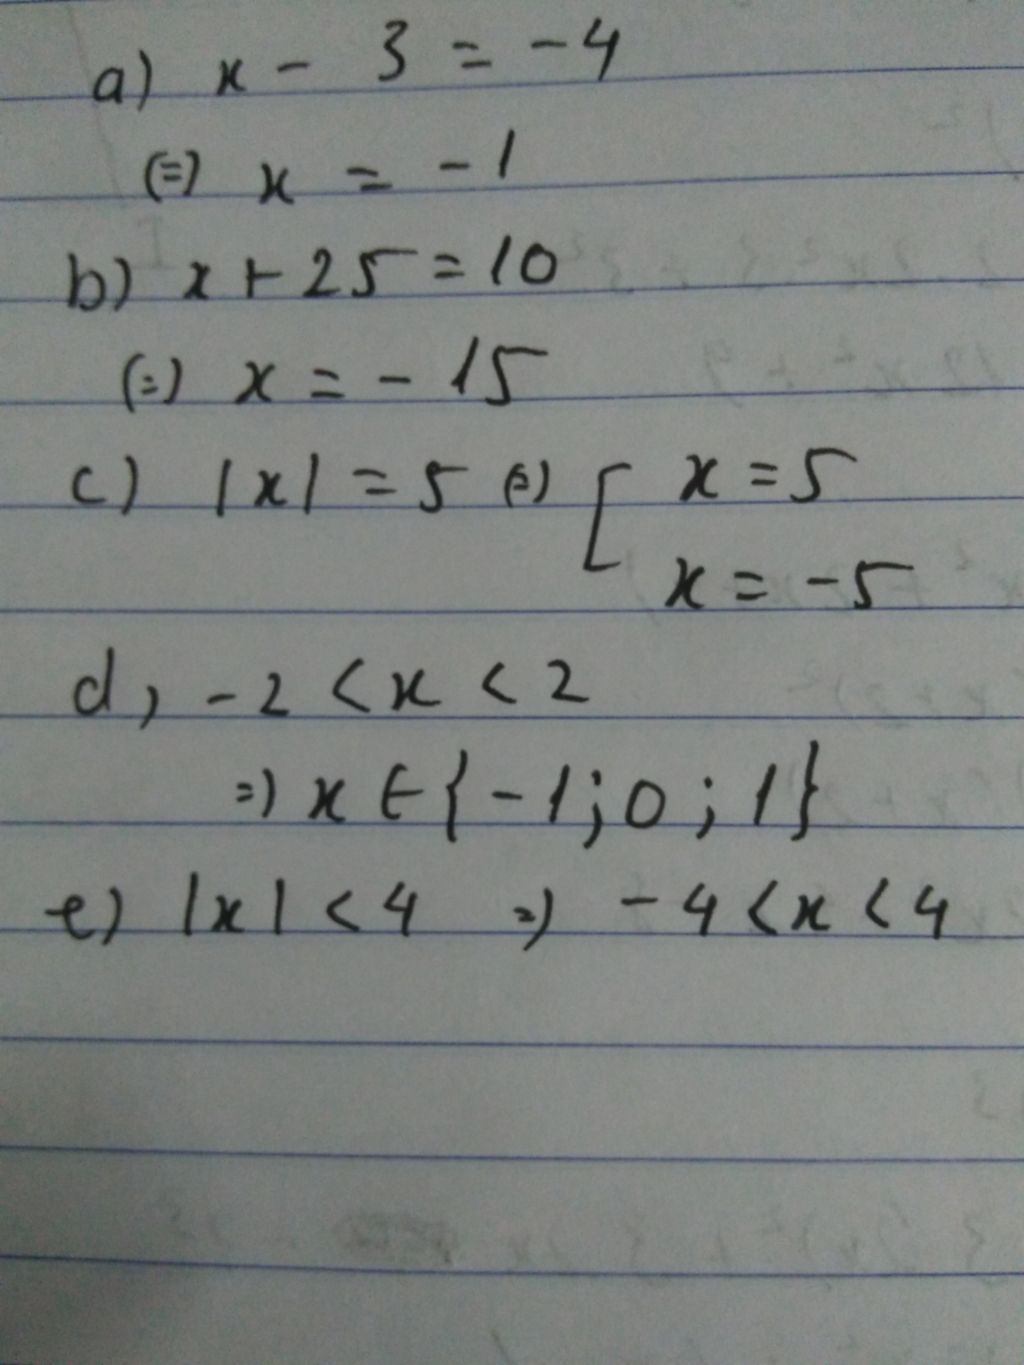 a) x - 3 = -4
(=) x = -1
b) x + 25 = 10
(=) x = -15
c) |x| = 5 (=) [ x = 5
x = -5
d, -2 < x < 2
=) x ∈ {-1; 0; 1}
e) |x| < 4 =) -4 < x < 4